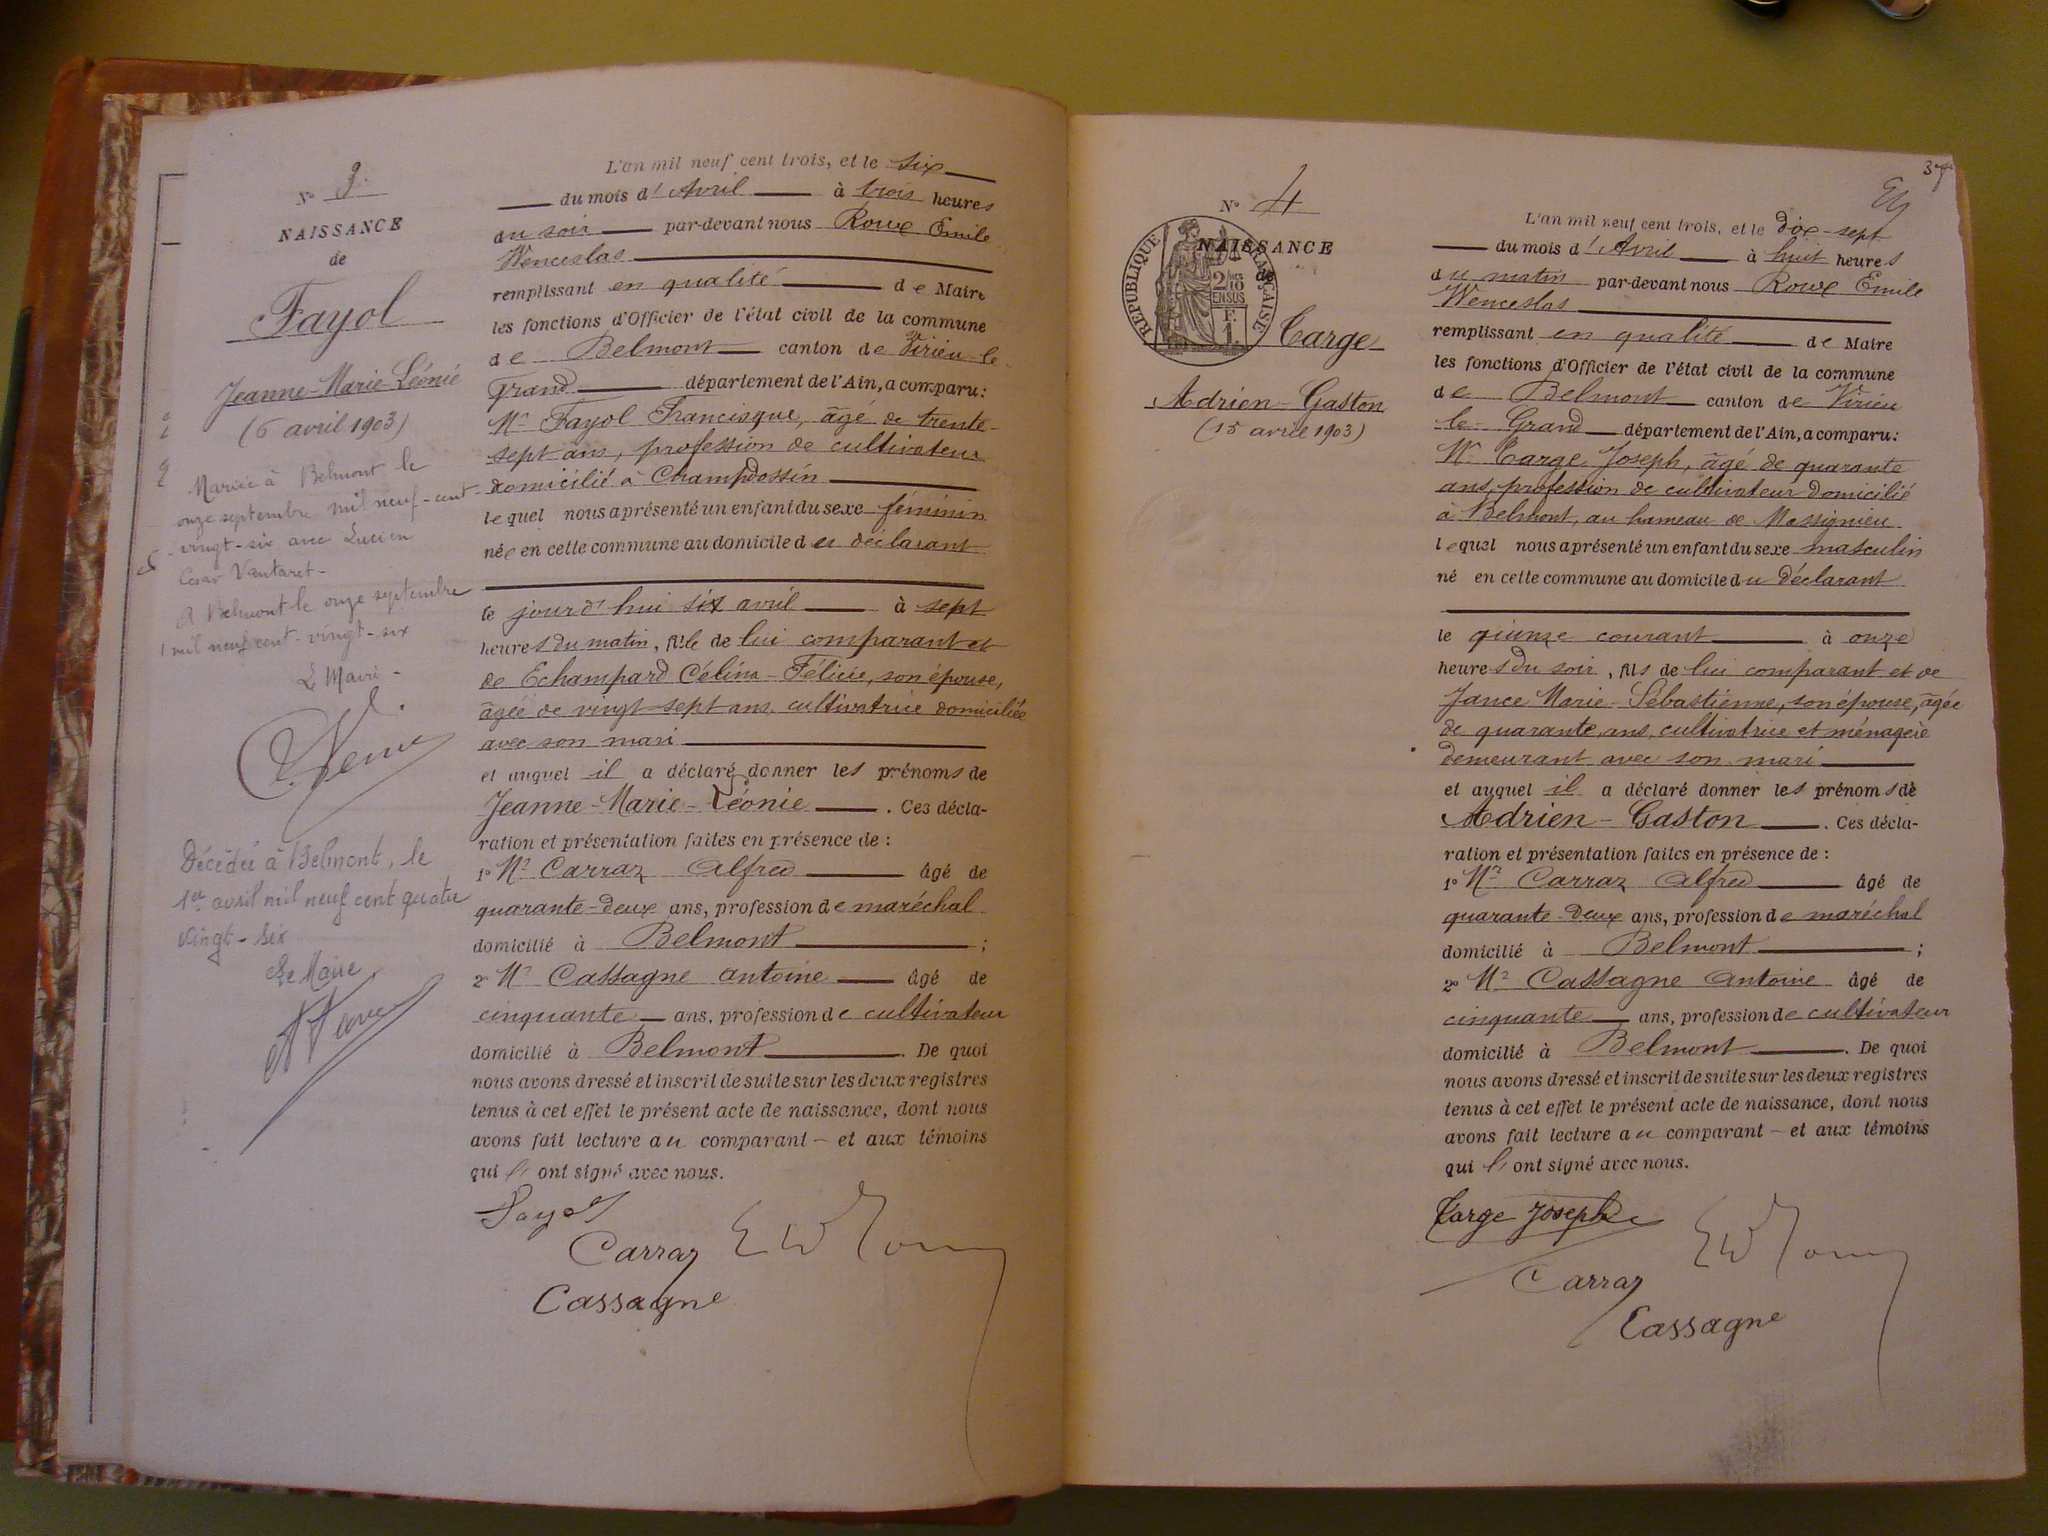 N° 3.
NAISSANCE
de
Fayol
Jeanne-Marie-Léonie
(6 avril 1903)
Mariée à Belmont le
onze septembre mil neuf-cent-
vingt-six avec Lucien
César Vautaret-
A Belmont le onze septembre
mil neuf cent-vingt-six
Le Maire-
Décédée à Belmont, le
1er avril mil neuf cent quatre
vingt-six
Le Maire
L'an mil neuf cent trois, et le six
du mois d'Avril à trois heures
du soir par-devant nous Roux Emile
Wenceslas
remplissant en qualité de Maire
les fonctions d'Officier de l'état civil de la commune
de Belmont canton de Virieu-le-
Grand département de l'Ain, a comparu:
Mr Fayol Francisque, âgé de trente-
sept ans, profession de cultivateur
domicilié à Champdossin
lequel nous a présenté un enfant du sexe féminin
née en cette commune au domicile du déclarant
le jourd'hui six avril à sept
heures du matin, fille de lui comparant et
de Echampard Célina-Félicie, son épouse,
âgée de vingt-sept ans, cultivatrice domiciliée
avec son mari
et auquel il a déclaré donner les prénoms de
Jeanne-Marie-Léonie. Ces décla-
ration et présentation faites en présence de :
1° Mr Carraz Alfred âgé de
quarante-deux ans, profession de maréchal
domicilié à Belmont ;
2° Mr Cassagne Antoine âgé de
cinquante ans, profession de cultivateur
domicilié à Belmont. De quoi
nous avons dressé et inscrit de suite sur les deux registres
tenus à cet effet le présent acte de naissance, dont nous
avons fait lecture au comparant - et aux témoins
qui l'ont signé avec nous.
Fayol
Carraz
Cassagne
37
N° 4
NAISSANCE
de
REPUBLIQUE FRANÇAISE
2/10
EN SUS
F.
1.
Targe
Adrien-Gaston
(15 avril 1903)
L'an mil neuf cent trois, et le dix-sept
du mois d'Avril à huit heures
du matin par-devant nous Roux Emile
Wenceslas
remplissant en qualité de Maire
les fonctions d'Officier de l'état civil de la commune
de Belmont canton de Virieu
le-Grand département de l'Ain, a comparu:
Mr Targe Joseph, âgé de quarante
ans, profession de cultivateur domicilié
à Belmont, au hameau de Massignieu
lequel nous a présenté un enfant du sexe masculin
né en cette commune au domicile du déclarant
le quinze courant à onze
heures du soir, fils de lui comparant et de
Jance Marie-Sébastienne, son épouse, âgée
de quarante ans, cultivatrice et ménagère
demeurant avec son mari
et auquel il a déclaré donner les prénoms de
Adrien-Gaston. Ces décla-
ration et présentation faites en présence de :
1° Mr Carraz Alfred âgé de
quarante-deux ans, profession de maréchal
domicilié à Belmont ;
2° Mr Cassagne Antoine âgé de
cinquante ans, profession de cultivateur
domicilié à Belmont. De quoi
nous avons dressé et inscrit de suite sur les deux registres
tenus à cet effet le présent acte de naissance, dont nous
avons fait lecture au comparant - et aux témoins
qui l'ont signé avec nous.
Targe Joseph
Carraz
Cassagne